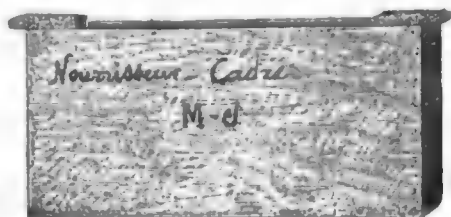 Nourrisseur-Cadre
M-d